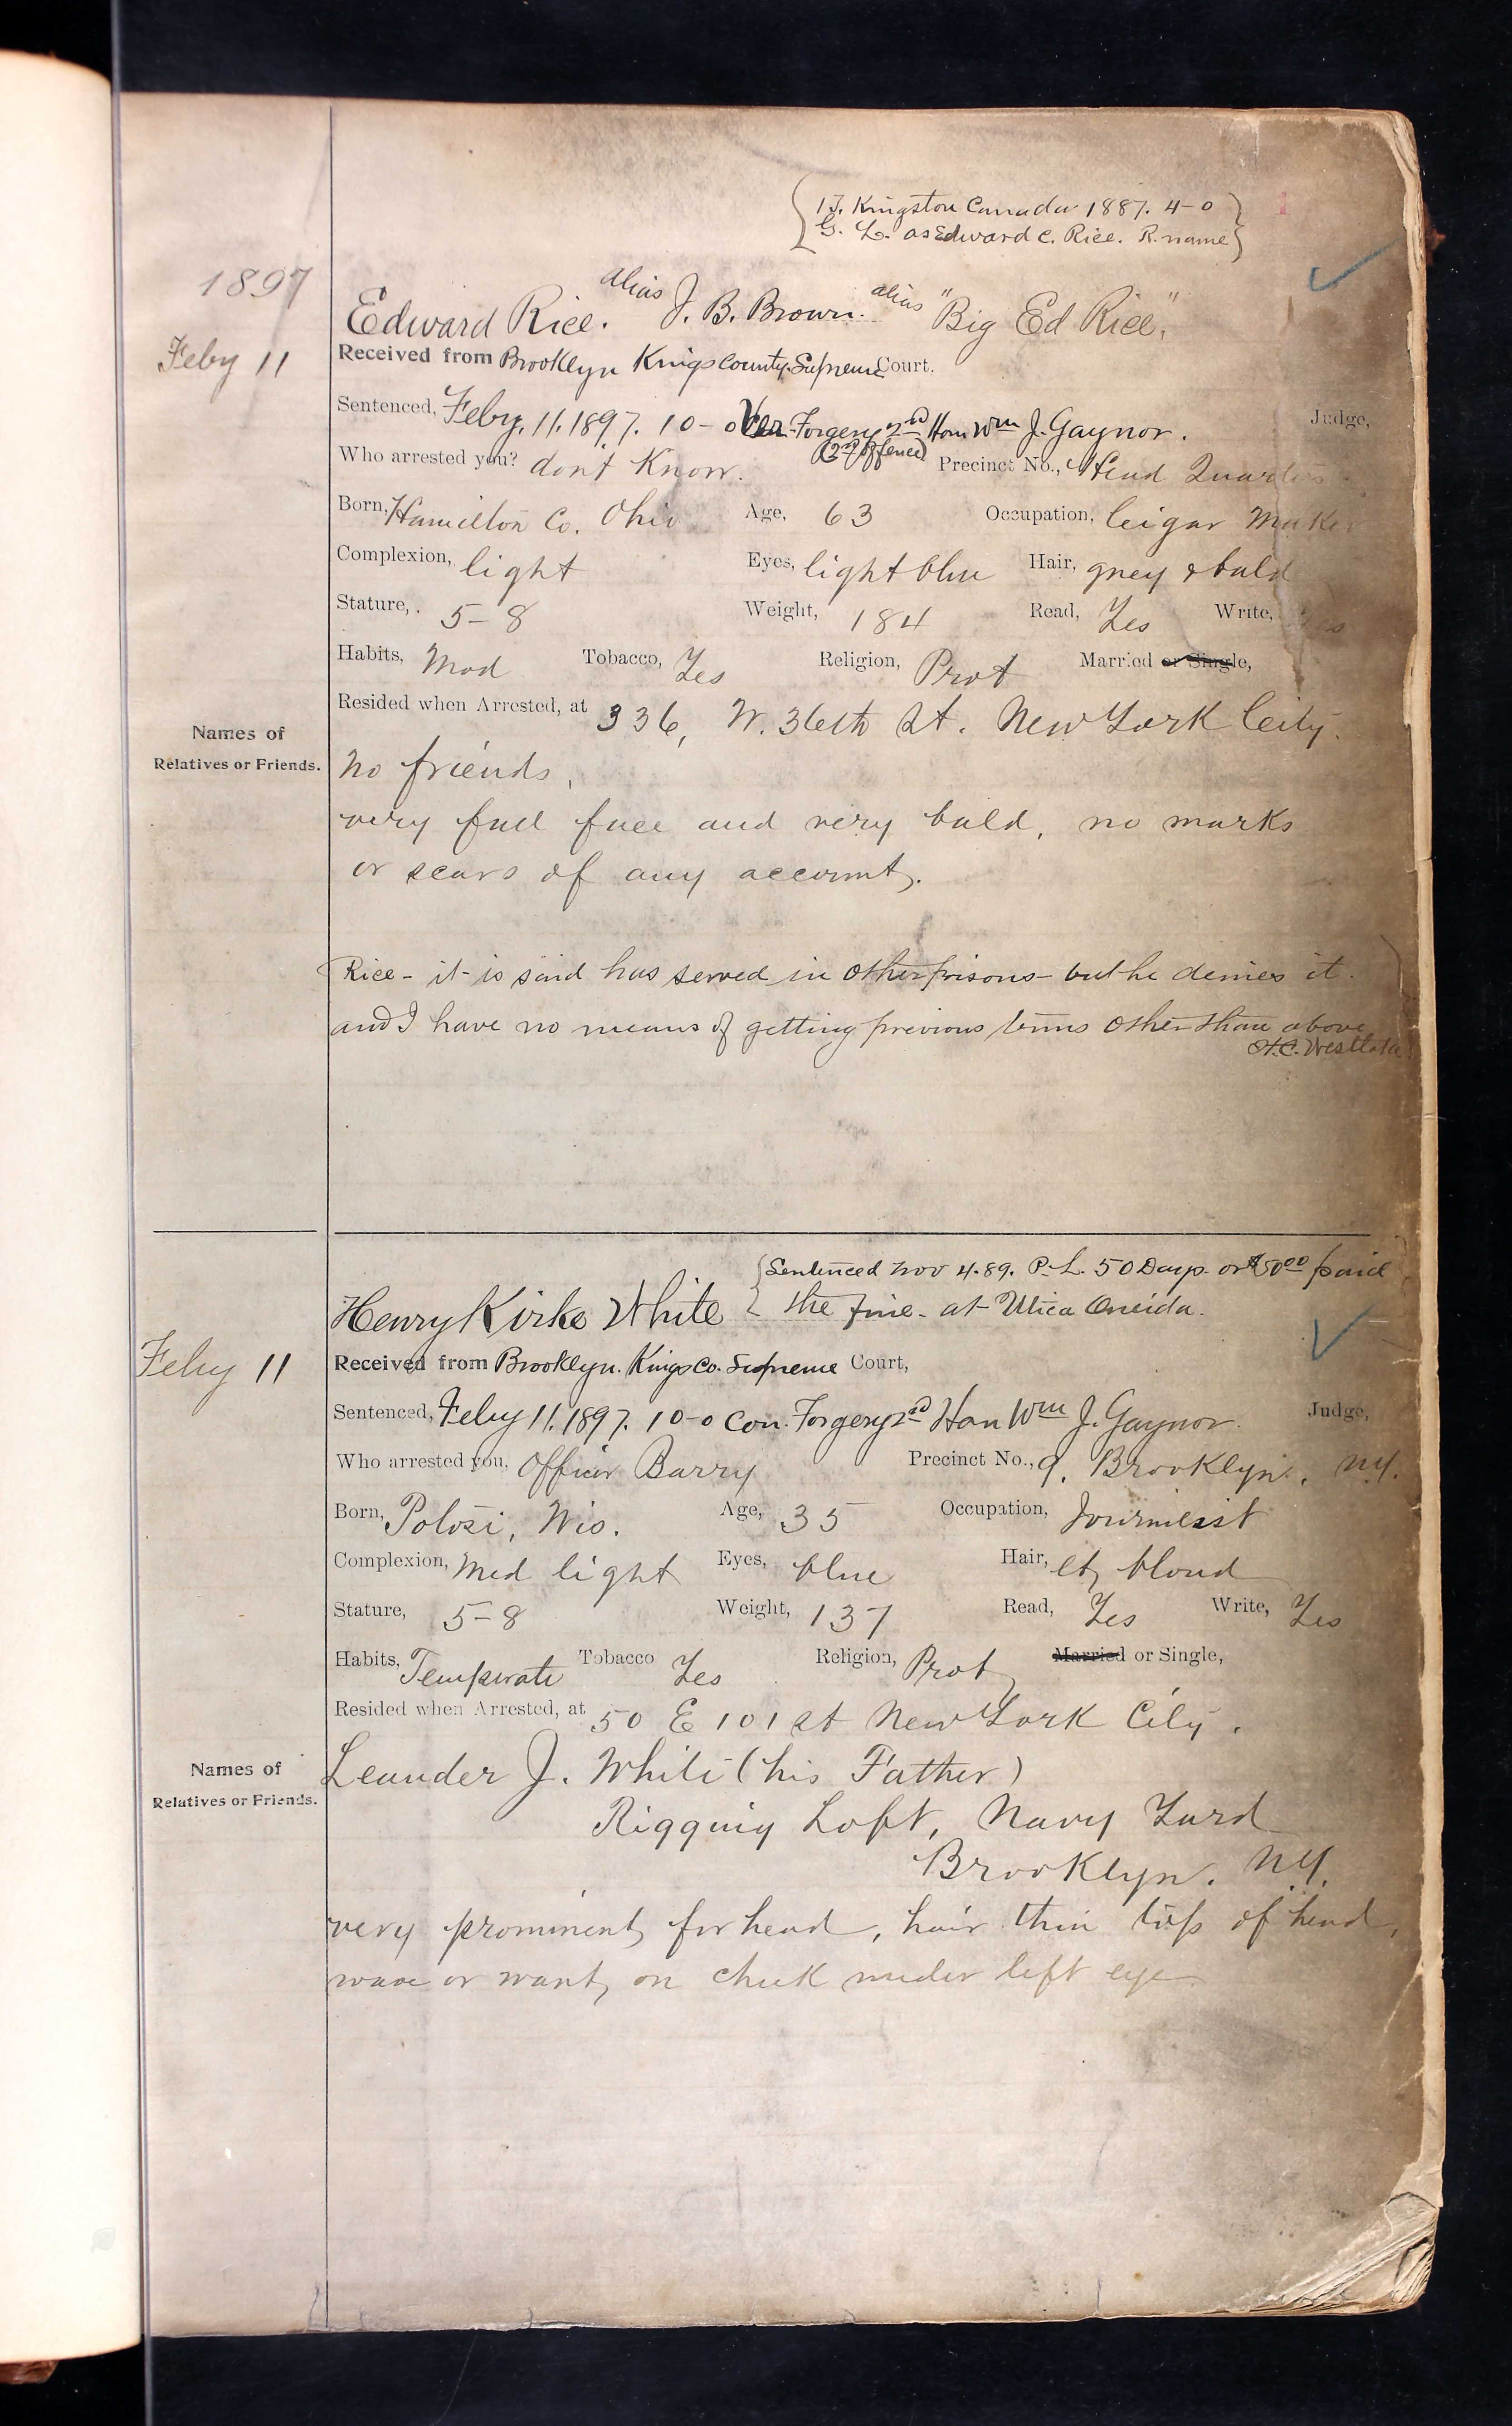 {1 T. Kingston Canada 1887. 4-0}
{G. L. as Edward C. Rice. R. name}
1897
Edward Rice. alias J. B. Brown. alias "Big Ed Rice."
Feby 11
Received from Brooklyn Kings County Supreme Court.
Sentenced, Feby. 11. 1897. 10-0 Forgery 2nd Hon Wm J. Gaynor. Judge,
(2nd offence)
Who arrested you? don't Know. Precinct No., Head Quarters
Born, Hamilton Co. Ohio Age, 63 Occupation, Cigar Maker
Complexion, light Eyes, light blue Hair, grey & bald
Stature, 5-8 Weight, 184 Read, Yes Write, Yes
Habits, Mod Tobacco, Yes Religion, Prot Married or Single,
Resided when Arrested, at 336, W. 36th St. New York City.
Names of
Relatives or Friends.
No friends,
very full face and very bald, no marks
or scars of any account.
Rice - it is said has served in other prisons - but he denies it.
and I have no means of getting previous terms other than above
H.C. Westlake
{Sentenced Nov 4. 89. P. L. 50 Days. or $50.00 paid
Henry Kirke White { the fine - at Utica Oneida.
Feby 11
Received from Brooklyn. Kings Co. Supreme Court,
Sentenced, Feby 11. 1897. 10-0 Con. Forgery 2nd Hon Wm J. Gaynor. Judge,
Who arrested you, Officer Barry Precinct No., 9, Brooklyn, N.Y.
Born, Potosi, Wis. Age, 35 Occupation, Journalist
Complexion, Med light Eyes, blue Hair, lt, blond
Stature, 5-8 Weight, 137 Read, Yes Write, Yes
Habits, Temperate Tobacco Yes Religion, Prot Married or Single,
Resided when Arrested, at 50 E 101 st New York City.
Names of
Relatives or Friends.
Leander J. White (his Father)
Rigging Loft, Navy Yard
Brooklyn. N.Y.
very prominent forhead, hair thin top of head,
or wart, on cheek under left eye